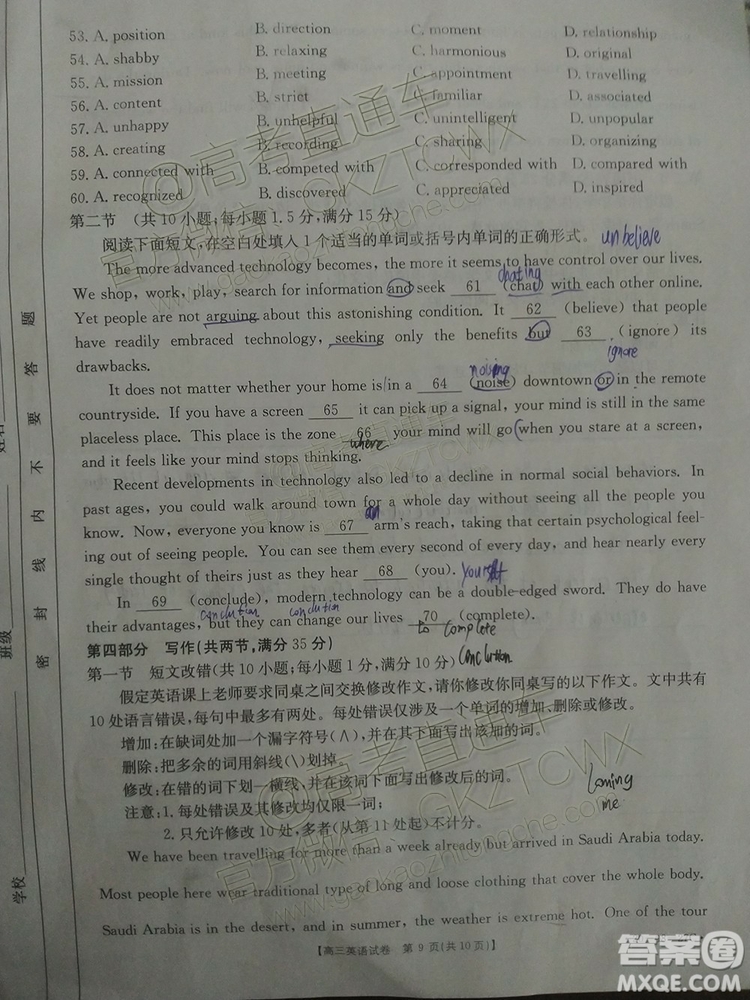 53. A. position B. direction C. moment D. relationship
54. A. shabby B. relaxing C. harmonious D. original
55. A. mission B. meeting C. appointment D. travelling
56. A. content B. strict C. familiar D. associated
57. A. unhappy B. unhelpful C. unintelligent D. unpopular
58. A. creating B. recording C. sharing D. organizing
59. A. connected with B. competed with C. corresponded with D. compared with
60. A. recognized B. discovered C. appreciated D. inspired
第二节 (共10小题;每小题1.5分,满分15分)
阅读下面短文,在空白处填入1个适当的单词或括号内单词的正确形式。 unbelieve
The more advanced technology becomes, the more it seems to have control over our lives.
chating
We shop, work, play, search for information and seek 61 (chat) with each other online.
Yet people are not arguing about this astonishing condition. It 62 (believe) that people
have readily embraced technology, seeking only the benefits but 63 (ignore) its
ignore
drawbacks.
noising
It does not matter whether your home is in a 64 (noise) downtown or in the remote
countryside. If you have a screen 65 it can pick up a signal, your mind is still in the
placeless place. This place is the zone 66 your mind will go when you stare at a screen,
where
and it feels like your mind stops thinking.
Recent developments in technology also led to a decline in normal social behaviors. In
past ages, you could walk around town for a whole day without seeing all the people you
an
know. Now, everyone you know is 67 arm's reach, taking that certain psychological feel-
ing out of seeing people. You can see them every second of every day, and hear nearly every
single thought of theirs just as they hear 68 (you).
In 69 (conclude), modern technology can be a double-edged sword. They do have
conclution
their advantages, but they can change our lives 70 (complete).
to complete
第四部分 写作(共两节,满分35分)
conclution
第一节 短文改错(共10小题;每小题1分,满分10分)
假定英语课上老师要求同桌之间交换修改作文,请你修改你同桌写的以下作文。文中共有
10处语言错误,每句中最多有两处。每处错误仅涉及一个单词的增加、删除或修改。
增加:在缺词处加一个漏字符号(∧),并在其下面写出该加的词。
删除:把多余的词用斜线(\)划掉。
修改:在错的词下划一横线,并在该词下面写出修改后的词。
注意:1. 每处错误及其修改均仅限一词;
me
2. 只允许修改10处,多者(从第11处起)不计分。
We have been travelling for more than a week already but arrived in Saudi Arabia today.
Most people here wear traditional type of long and loose clothing that cover the whole body.
Saudi Arabia is in the desert, and in summer, the weather is extreme hot. One of the tour
【高三英语试卷 第9页(共10页)】
学校
班级
姓名
密封线内不要答题
@高考直通车
官方微信:GKZTCWX
www.gaokaozhitongche.com
@高考直通车
官方微信:GKZTCWX
www.gaokaozhitongche.com
答案圈
MXQE.COM